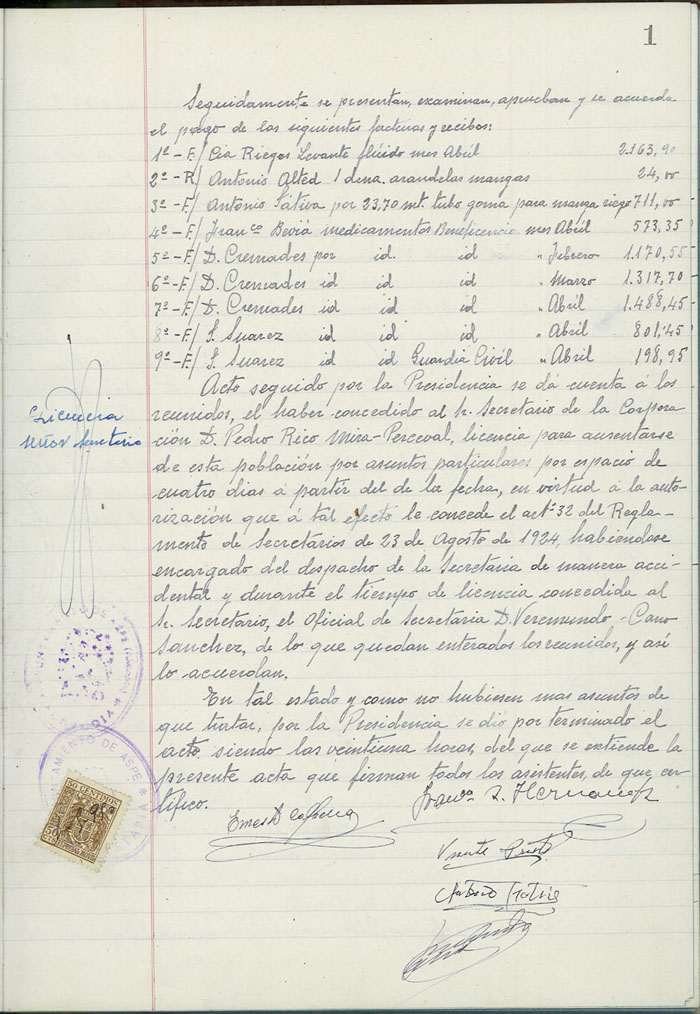 1
Seguidamente se presentan, examinan, aprueban y se acuerda
el pago de las siguientes facturas y recibos:
1º-F/ Cia Riegos Levante fluido mes Abril 2.163,90
2º-R/ Antonio Alted 1 dena. arandelas mangas 24,00
3º-F/ Antonio Sátiva por 23,70 mt. tubo goma para manga riego 711,00
4º-F/ Franco Beviá medicamentos Beneficencia mes Abril 573,35
5º-F/ D. Cremades por id. id " Febrero 1.170,55
6º-F/ D. Cremades id id id " Marzo 1.317,70
7º-F/ D. Cremades id id id " Abril 1.488,45
8º-F/ S. Suarez id id id " Abril 801,45
9º-F/ S. Suarez id id Guardia Civil " Abril 198,95
Acto seguido por la Presidencia se dá cuenta á los
reunidos, el haber concedido al Sr. Secretario de la Corpora-
ción D. Pedro Rico Mira-Perceval, licencia para ausentarse
de esta población por asuntos particulares por espacio de
cuatro dias á partir del de la fecha, en virtud á la auto-
rización que á tal efecto le concede el artº 32 del Regla-
mento de Secretarios de 23 de Agosto de 1924, habiendose
encargado del despacho de la Secretaria de manera acci-
dental y durante el tiempo de licencia concedida al
Sr. Secretario, el Oficial de Secretaria D. Veremundo-Cano
Sanchez, de lo que quedan enterados los reunidos, y así
lo acuerdan.
En tal estado y como no hubiesen mas asuntos de
que tratar, por la Presidencia se dió por terminado el
acto siendo las veintiuna horas, del que se extiende la
presente acta que firman todos los asistentes, de que cer-
tifico.
Licencia
señor Secretario
AYUNTAMIENTO DE ASPE
50 CENTIMOS
Hernandez
Vicente
Antonio